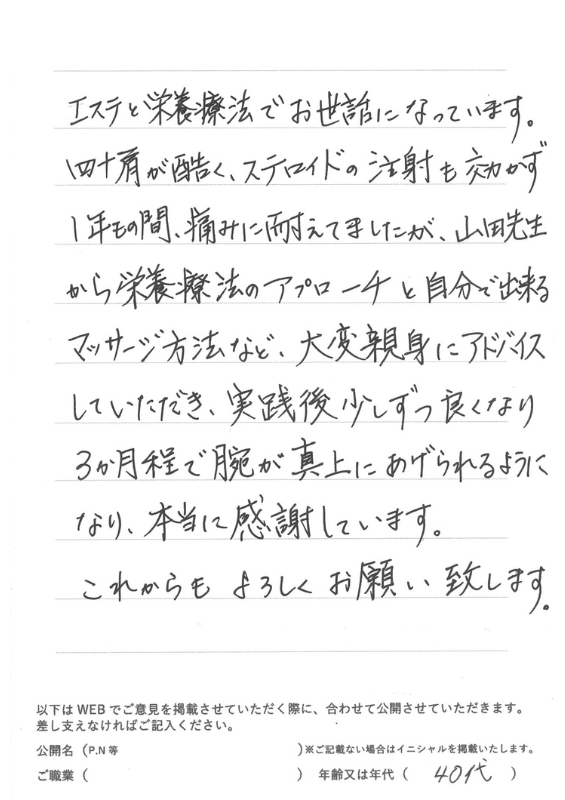 エステと栄養療法でお世話になっています。
四十肩が酷く、ステロイドの注射も効かず
1年もの間、痛みに耐えてましたが、山田先生
から栄養療法のアプローチと自分で出来る
マッサージ方法など、大変親身にアドバイス
していただき、実践後少しずつ良くなり
3か月程で腕が真上にあげられるように
なり、本当に感謝しています。
これからもよろしくお願い致します。
以下は WEB でご意見を掲載させていただく際に、合わせて公開させていただきます。
差し支えなければご記入ください。
公開名（P.N 等 ）※ご記載ない場合はイニシャルを掲載いたします。
ご職業（ ） 年齢又は年代（ 40代 ）